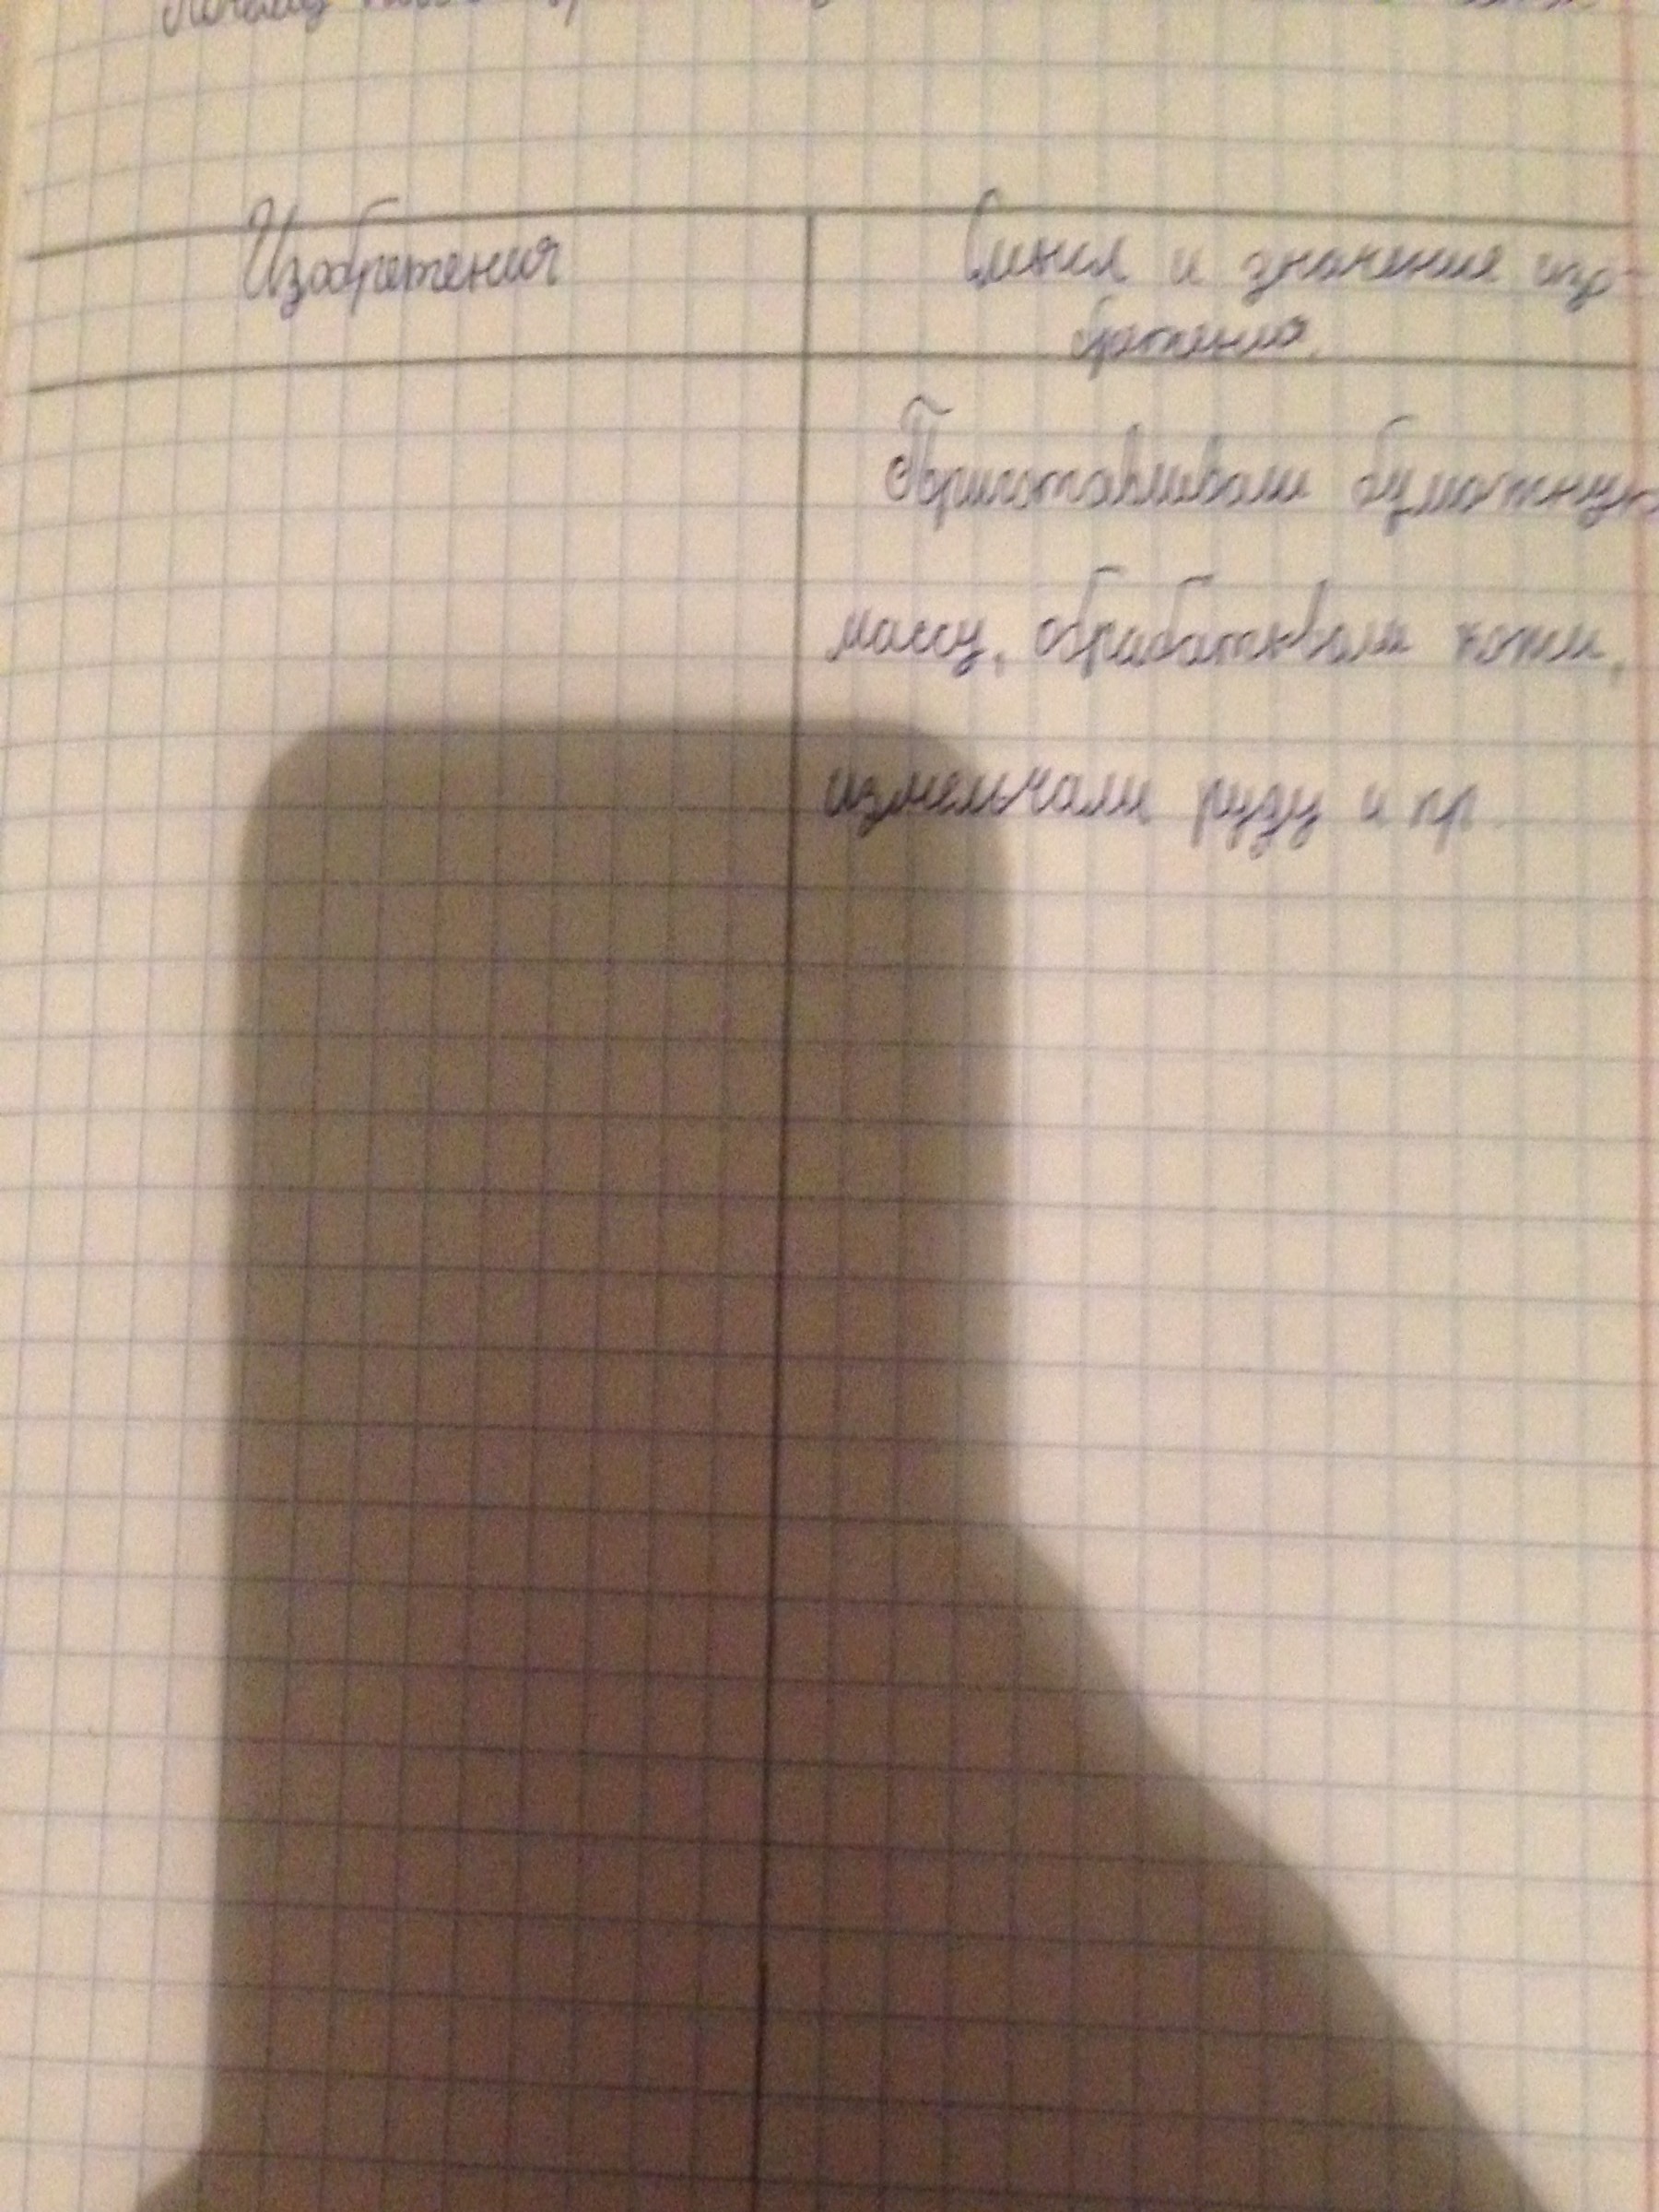 Почему
Изобретения
Смысл и значение изо-
бретения.
Приготавливали бумажную
массу, обрабатывали кожи,
измельчали руду и пр.